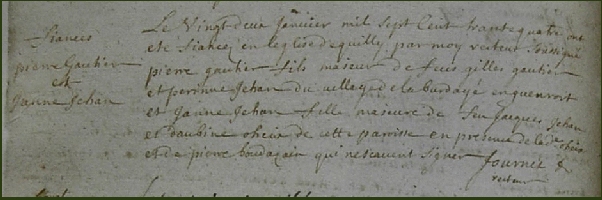 fiances
pierre Gautier
et
Janne Jehan
Le Vingt deux Janvier mil sept Cent trente quatre ont
ete fiances en leglise dequilly par moy recteur Soussigné
pierre gautier fils majeur de feus gilles gautier
et perinne Jehan du village de la burdaye en guenroit
et Janne Jehan fille mineure de feu Jacques Jehan
et oheix de cette paroisse en presence de
et de pierre qui ne scavent signer
Journee
recteur